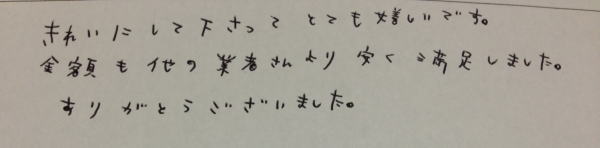 きれいにして下さって とても嬉しいです。
金額も他の業者さんより安く満足しました。
ありがとうございました。